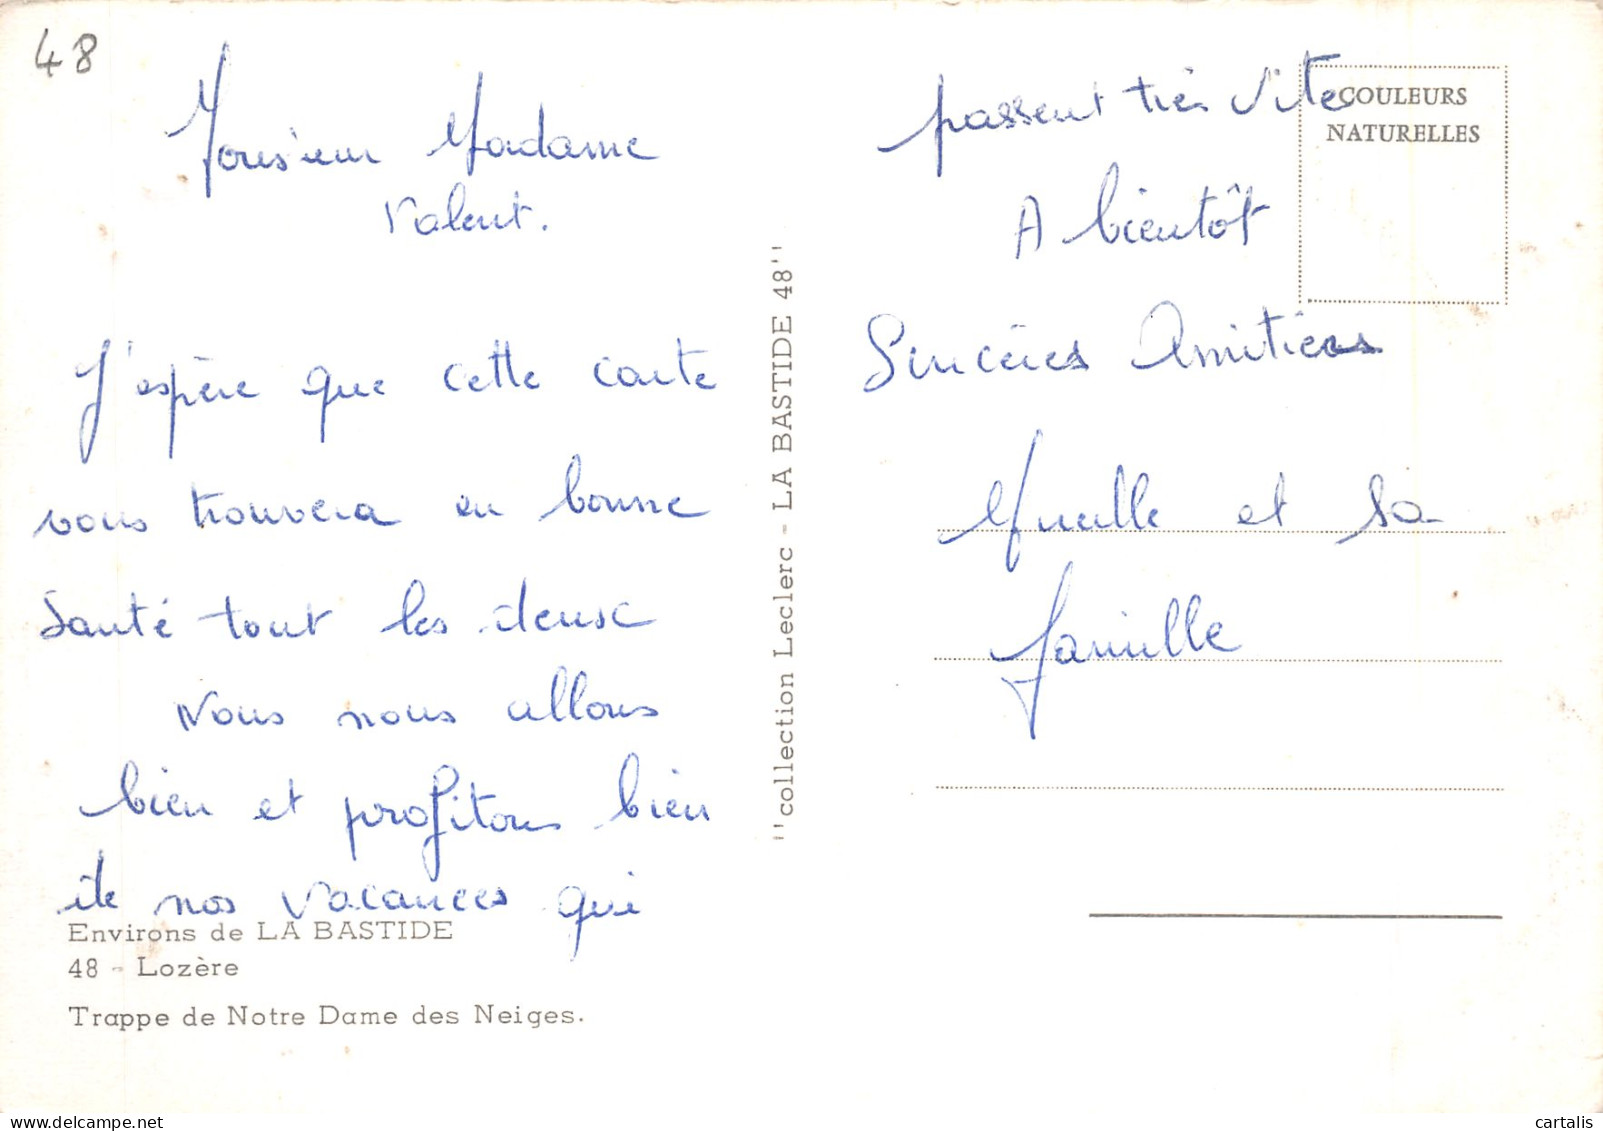 48
Monsieur Madame
Valent.
J'espère que cette carte
vous trouvera en bonne
Santé tout les deux
Nous nous allons
bien et profitons bien
de nos vacances qui
Environs de LA BASTIDE
48 - Lozère
Trappe de Notre Dame des Neiges.
"collection Leclerc - LA BASTIDE 48"
passent très vite
COULEURS
NATURELLES
A bientôt
Sincères Amitiées
et sa
famille
cartalis